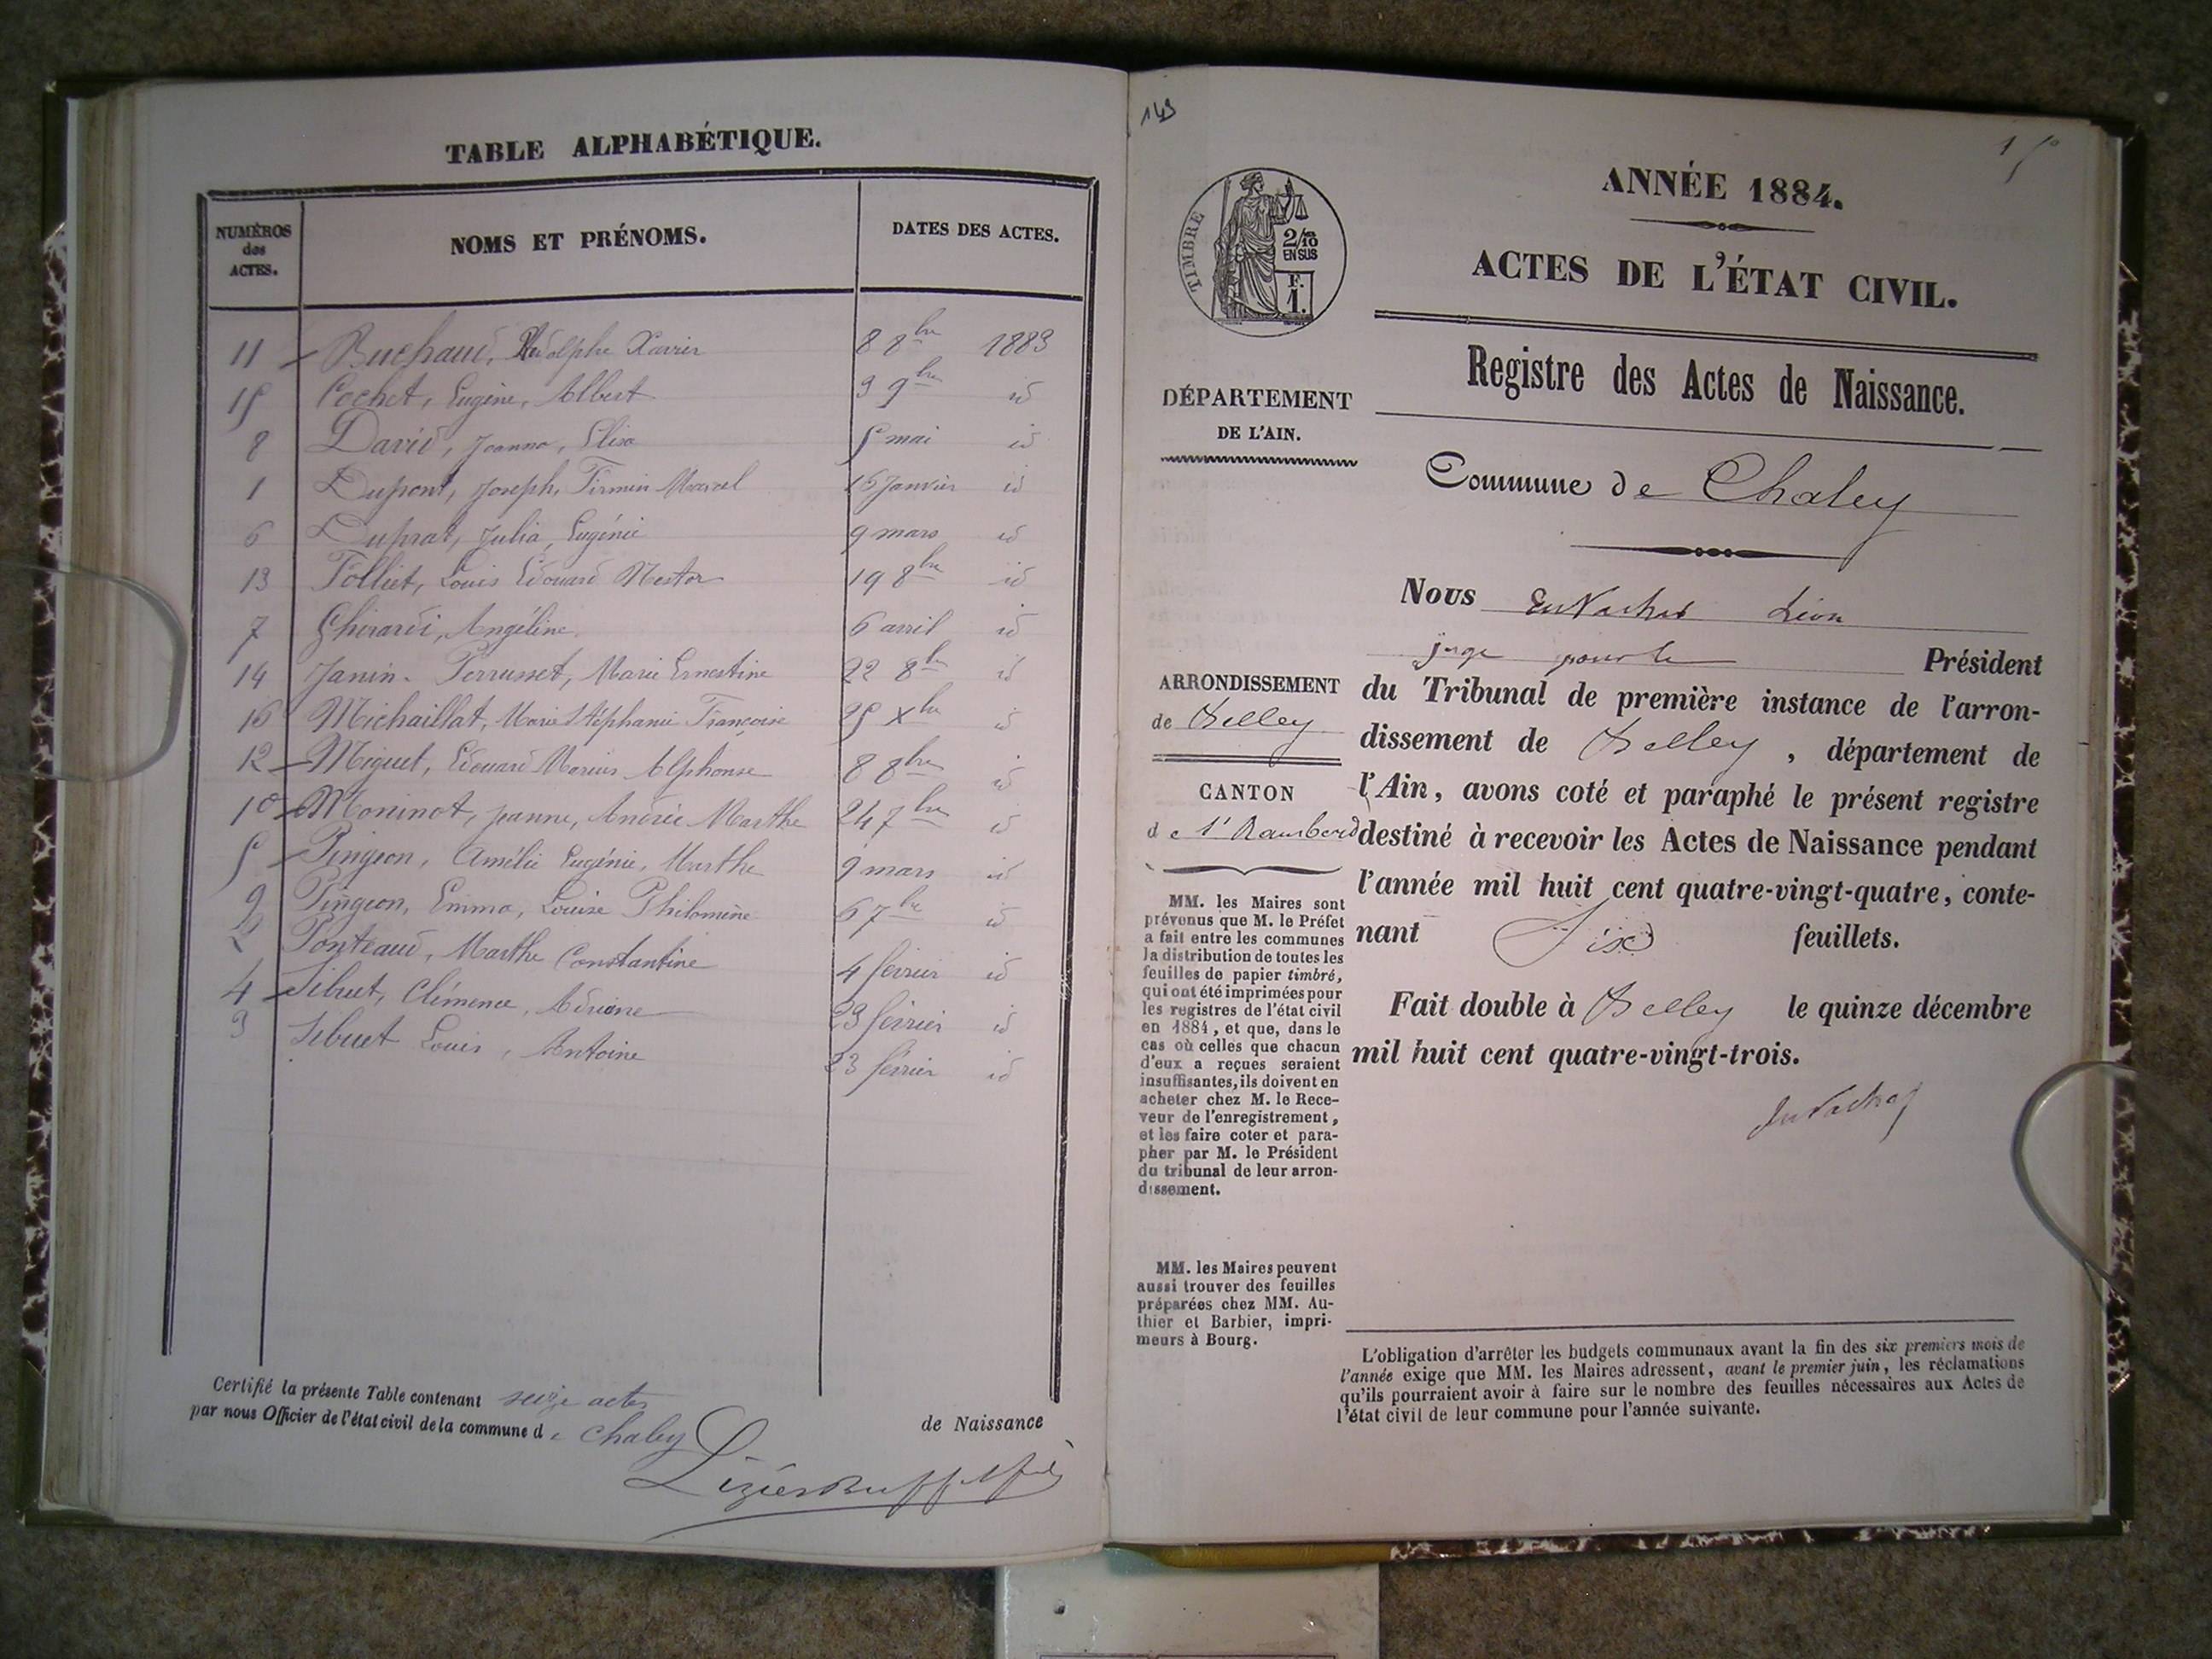 TABLE ALPHABÉTIQUE.
NUMÉROS des ACTES.
NOMS ET PRÉNOMS.
DATES DES ACTES.
11 Buchaud, Adolphe Xavier 8 8bre 1883
15 Cochet, Eugène, Albert 3 9bre id
8 David, Joanna, Elisa 5 mai id
1 Dupont, Joseph, Firmin Marcel 16 Janvier id
6 Duprat, Julia, Eugénie 9 mars id
13 Folliet, Louis Edouard Nestor 19 8bre id
7 Ghirardi, Angéline 6 avril id
14 Janin-Ferrusset, Marie Ernestine 22 8bre id
16 Michaillat, Marie Stéphanie Françoise 25 Xbre id
12 Miguet, Edouard Marius Alphonse 8 8bre id
10 Moninot, Jeanne, Andrée Marthe 24 7bre id
5 Pingeon, Amélie Eugénie, Marthe 9 mars id
9 Pingeon, Emma, Louise Philomène 6 7bre id
2 Ponteaud, Marthe Constantine 4 février id
4 Sibuet, Clémence, Adriene 23 février id
3 Sibuet Louis, Antoine 23 février id
Certifié la présente Table contenant seize actes de Naissance
par nous Officier de l'état civil de la commune de Chaley
149
ANNÉE 1884.
ACTES DE L'ÉTAT CIVIL.
TIMBRE
2/10 EN SUS
F. 1.
Registre des Actes de Naissance.
DÉPARTEMENT
DE L'AIN.
Commune de Chaley
Nous Léon
juge pour le Président
ARRONDISSEMENT
de Belley
du Tribunal de première instance de l'arron-
dissement de Belley, département de
CANTON
de St Rambert
l'Ain, avons coté et paraphé le présent registre
destiné à recevoir les Actes de Naissance pendant
l'année mil huit cent quatre-vingt-quatre, conte-
nant Six feuillets.
Fait double à Belley le quinze décembre
mil huit cent quatre-vingt-trois.
MM. les Maires sont
prévenus que M. le Préfet
a fait entre les communes
la distribution de toutes les
feuilles de papier timbré,
qui ont été imprimées pour
les registres de l'état civil
en 1884, et que, dans le
cas où celles que chacun
d'eux a reçues seraient
insuffisantes, ils doivent en
acheter chez M. le Rece-
veur de l'enregistrement,
et les faire coter et para-
pher par M. le Président
du tribunal de leur arron-
dissement.
MM. les Maires peuvent
aussi trouver des feuilles
préparées chez MM. Au-
thier et Barbier, impri-
meurs à Bourg.
L'obligation d'arrêter les budgets communaux avant la fin des six premiers mois de
l'année exige que MM. les Maires adressent, avant le premier juin, les réclamations
qu'ils pourraient avoir à faire sur le nombre des feuilles nécessaires aux Actes de
l'état civil de leur commune pour l'année suivante.